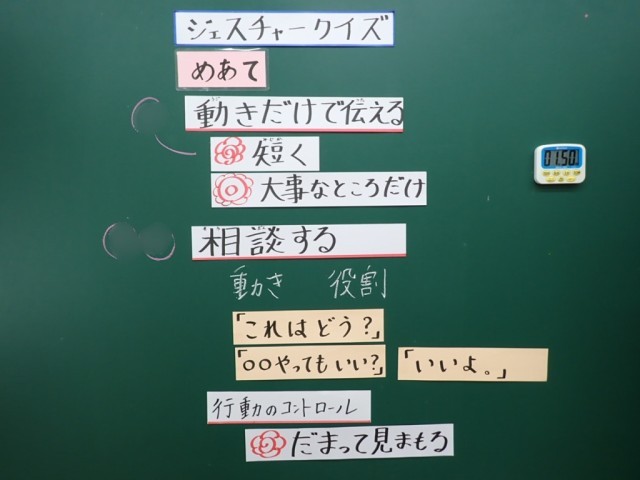 ジェスチャークイズ
めあて
動きだけで伝える
短く
大事なところだけ
01:50
相談する
動き 役割
「これはどう？」
「○○やってもいい？」 「いいよ。」
行動のコントロール
だまって見まもる